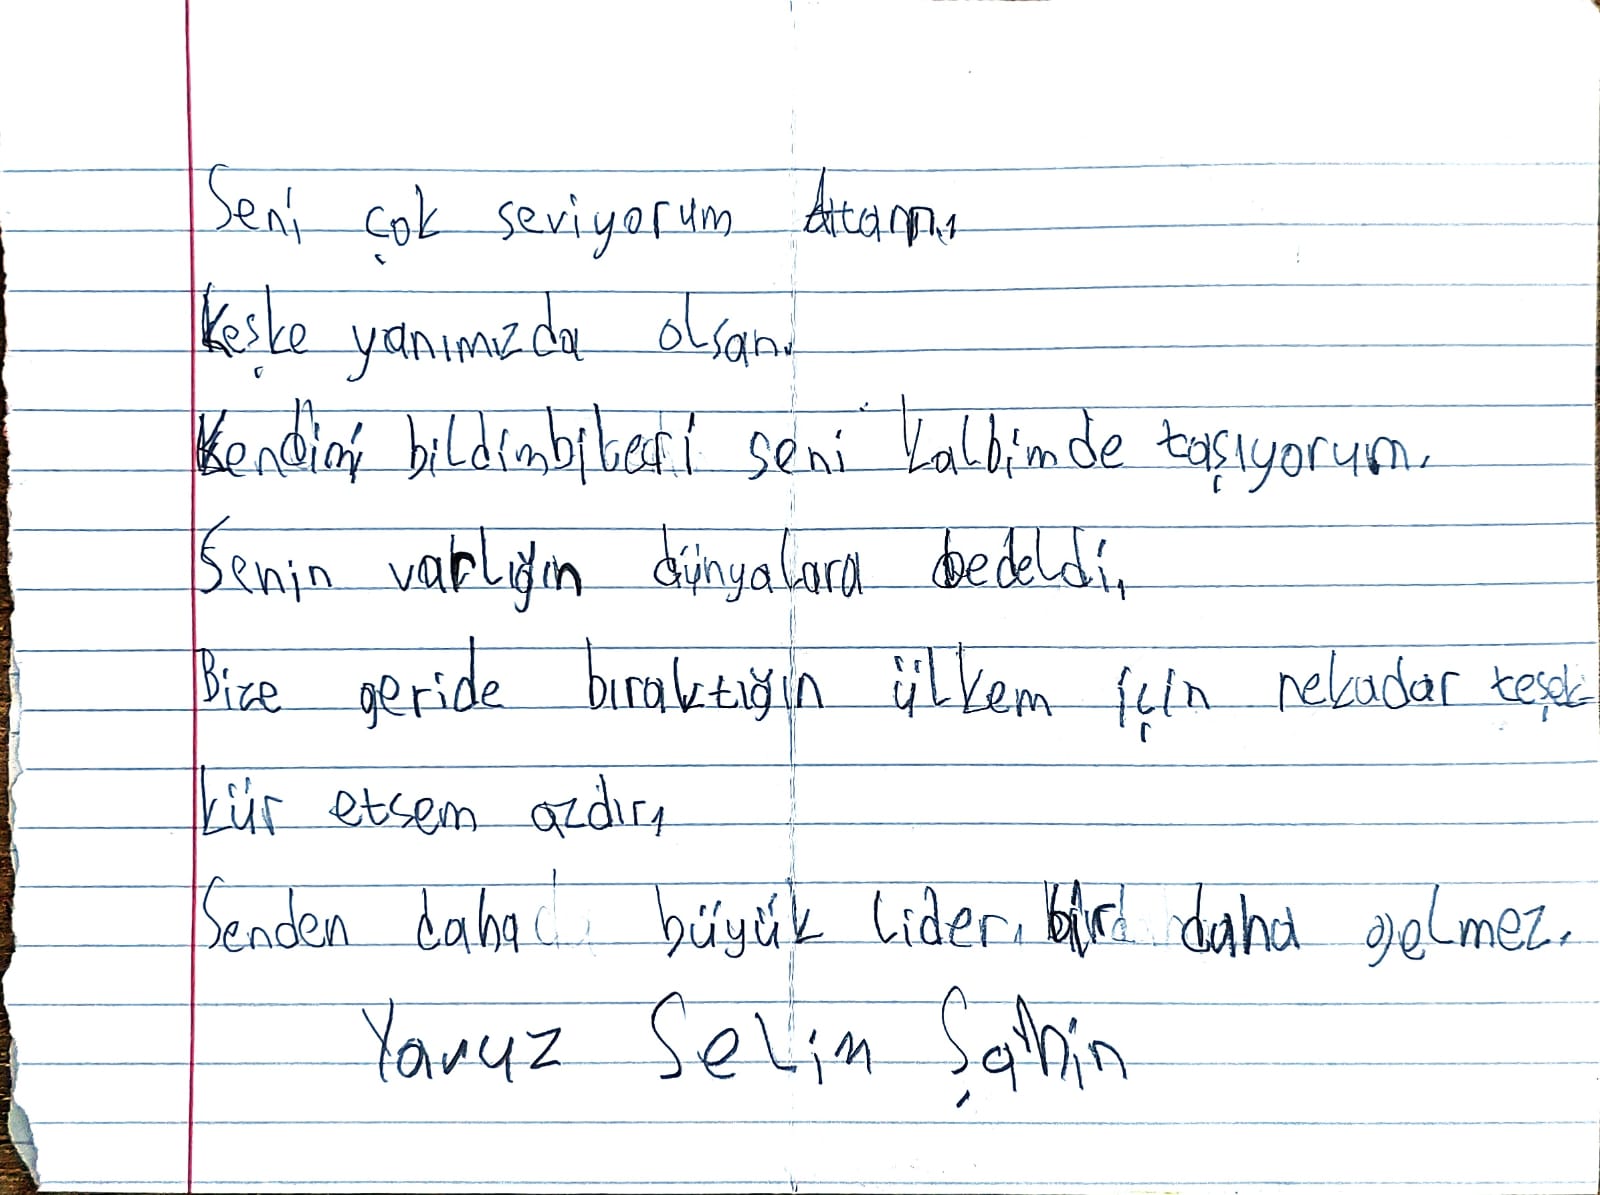 Seni çok seviyorum Atam.
Keşke yanımızda olsan.
Kendimi bildimbileli seni kalbimde taşıyorum.
Senin varlığın dünyalara bedeldi.
Bize geride bıraktığın ülkem için nekadar teşek
kür etsem azdır.
Senden daha büyük lider, bir daha gelmez.
Yavuz Selim Şahin